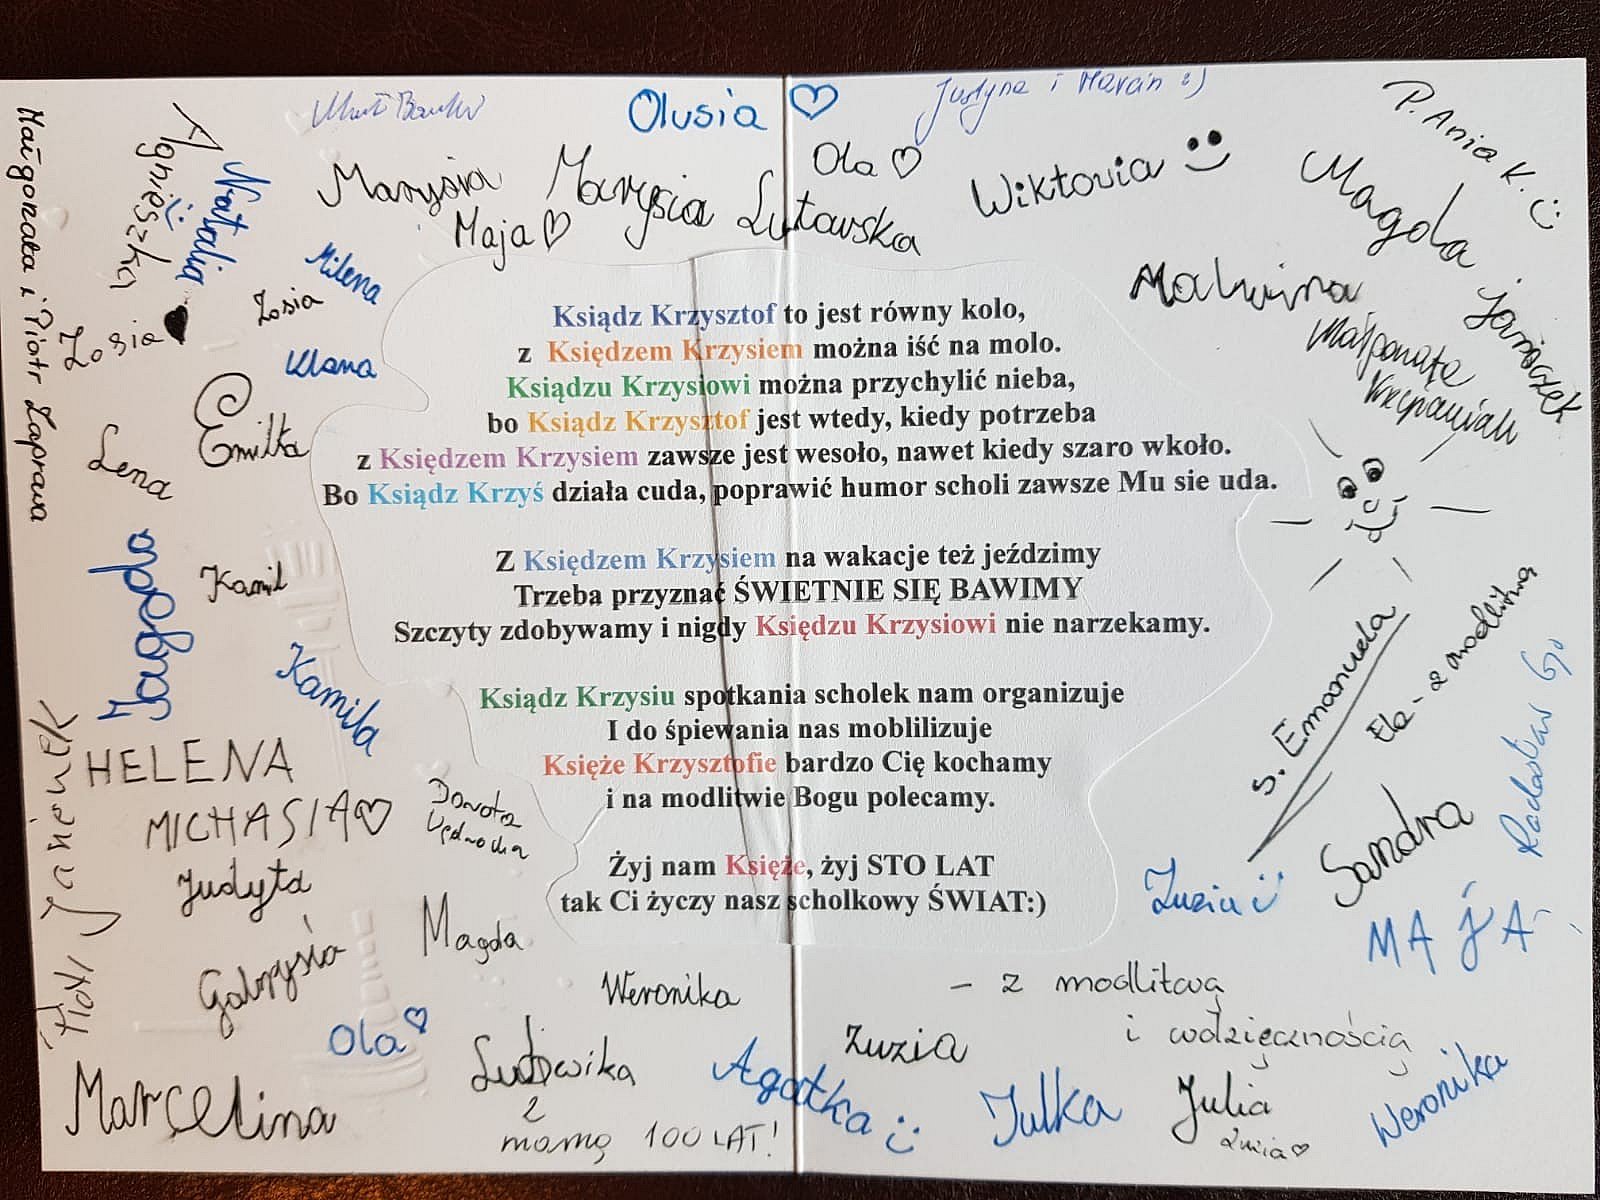 Olusia
Justyna i Marcin :)
P. Ania K.
Agnieszka
Natalia
Marysia
Marysia Lutawska
Ola
Wiktoria
Magda Jarioszek
Maja
Małgorzata i Piotr Zaprawa
Milena
Zosia
Zosia
Malwina
Małgorzata
Klara
Emilka
Lena
Ksiądz Krzysztof to jest równy kolo,
z Księdzem Krzysiem można iść na molo.
Ksiądzu Krzysiowi można przychylić nieba,
bo Ksiądz Krzysztof jest wtedy, kiedy potrzeba
z Księdzem Krzysiem zawsze jest wesoło, nawet kiedy szaro wkoło.
Bo Ksiądz Krzyś działa cuda, poprawić humor scholi zawsze Mu sie uda.
Z Księdzem Krzysiem na wakacje też jeździmy
Trzeba przyznać ŚWIETNIE SIĘ BAWIMY
Szczyty zdobywamy i nigdy Księdzu Krzysiowi nie narzekamy.
Ksiądz Krzysiu spotkania scholek nam organizuje
I do śpiewania nas moblilizuje
Księże Krzysztofie bardzo Cię kochamy
i na modlitwie Bogu polecamy.
Żyj nam Księże, żyj STO LAT
tak Ci życzy nasz scholkowy ŚWIAT:)
Jagoda
Kamil
Kamila
s. Emanuela
Ela - z modlitwą
Radosław
HELENA
MICHASIA
Dorota
Judyta
Gabrysia
Magda
Sandra
Zuzia
MAJA
Weronika
- z modlitwą
i wdzięcznością
Ola
Marcelina
Ludwika
z
mamą 100 LAT!
Agatka
Zuzia
Julka
Julia
Zuzia
Weronika